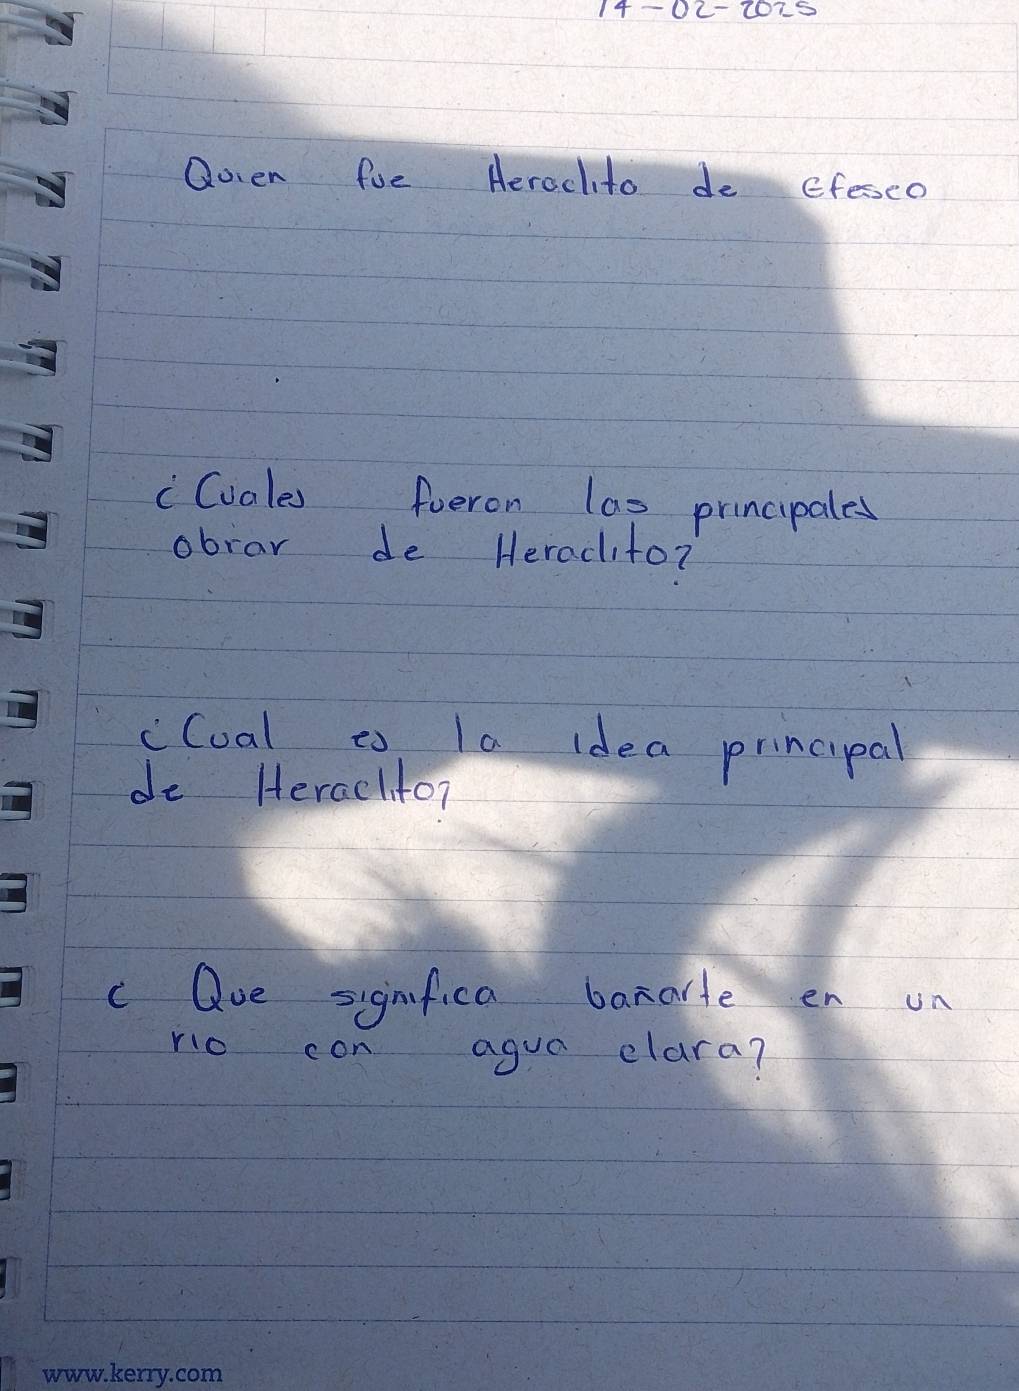 14-02-2025
Quien fue Heraclito de Efeseo
¿Cuales fueron las principales
obrar de Heraclito?
¿Cual es la idea principal
de Heraclito?
¿ Que significa bañarte en un
rio con agua clara?
www.kerry.com